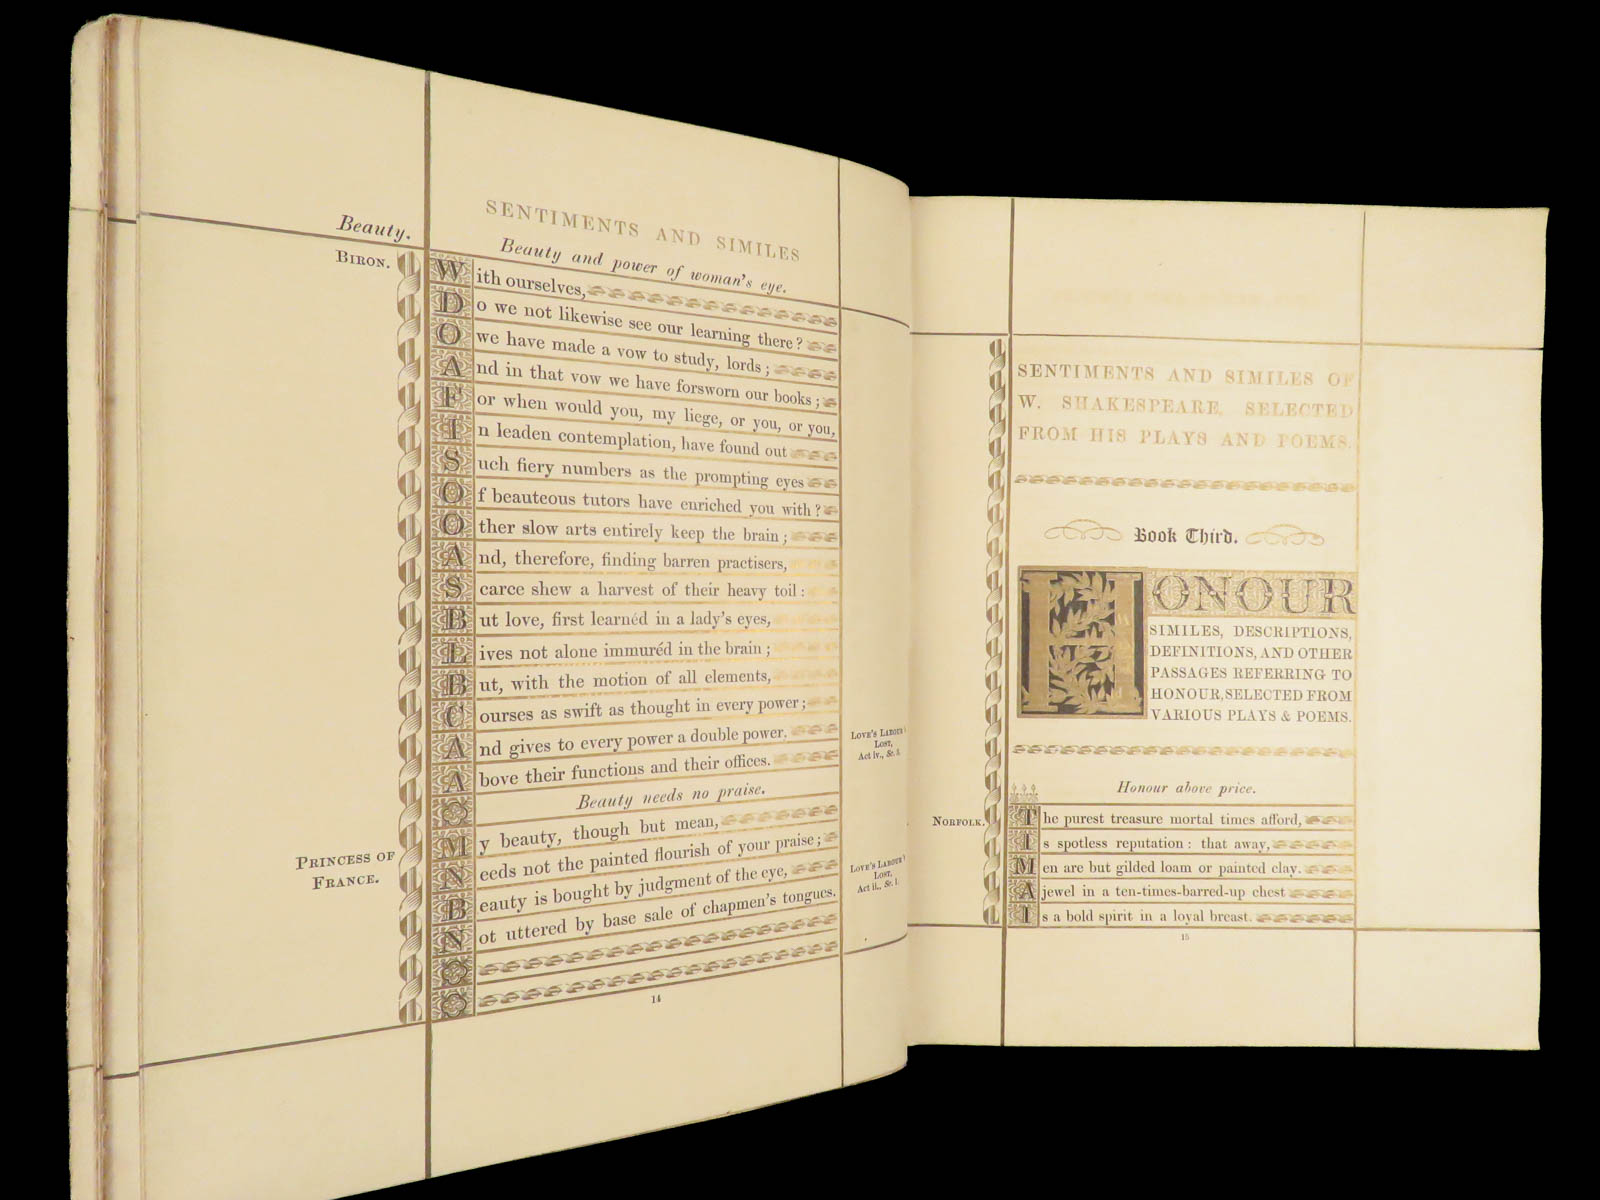 SENTIMENTS AND SIMILES
Beauty.
Beauty and power of woman's eye.
BIRON.
With ourselves,
Do we not likewise see our learning there?
O we have made a vow to study, lords;
And in that vow we have forsworn our books;
For when would you, my liege, or you, or you,
In leaden contemplation, have found out
Such fiery numbers as the prompting eyes
Of beauteous tutors have enriched you with?
Other slow arts entirely keep the brain;
And, therefore, finding barren practisers,
Scarce shew a harvest of their heavy toil:
But love, first learnéd in a lady's eyes,
Lives not alone immuréd in the brain;
But, with the motion of all elements,
Courses as swift as thought in every power;
And gives to every power a double power,
Above their functions and their offices.
LOVE'S LABOUR'
LOST,
Act iv., Sc. 3.
Beauty needs no praise.
PRINCESS OF
FRANCE.
My beauty, though but mean,
Needs not the painted flourish of your praise;
Beauty is bought by judgment of the eye,
Not uttered by base sale of chapmen's tongues.
LOVE'S LABOUR'
LOST,
Act ii., Sc. 1.
14
SENTIMENTS AND SIMILES OF
W. SHAKESPEARE, SELECTED
FROM HIS PLAYS AND POEMS.
Book Third.
HONOUR
SIMILES, DESCRIPTIONS,
DEFINITIONS, AND OTHER
PASSAGES REFERRING TO
HONOUR, SELECTED FROM
VARIOUS PLAYS & POEMS.
Honour above price.
NORFOLK.
The purest treasure mortal times afford,
Is spotless reputation: that away,
Men are but gilded loam or painted clay.
A jewel in a ten-times-barred-up chest
Is a bold spirit in a loyal breast.
15